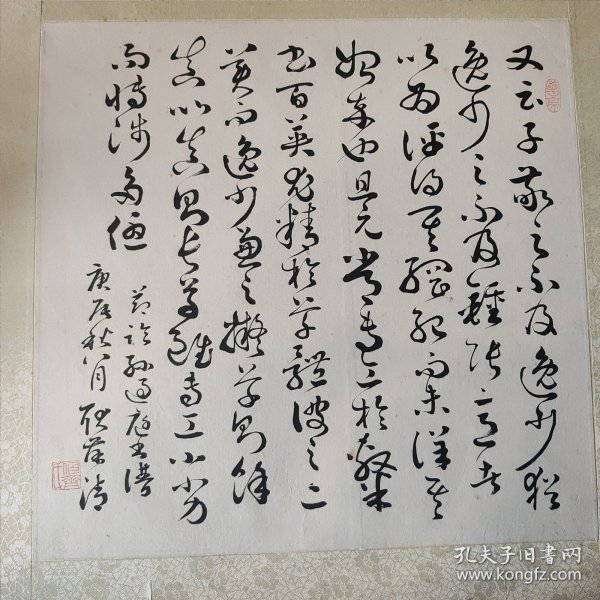 又云子敬之不及逸少猶
逸少之不及鍾張意者
以為評得其綱紀而未詳其
始卒也且元常專工於隸
書百英尤精於草體彼之二
美而逸少兼之擬草則餘
真比真則長草雖專工小劣
而博涉多優
節臨孫過庭書譜
庚辰秋八月
孔夫子旧书网
www.kongfz.com